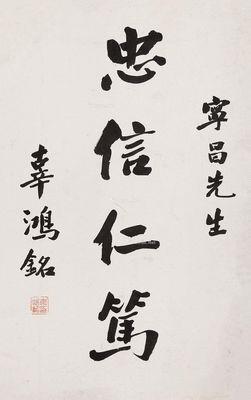 寧昌先生
忠信仁篤
辜鴻銘